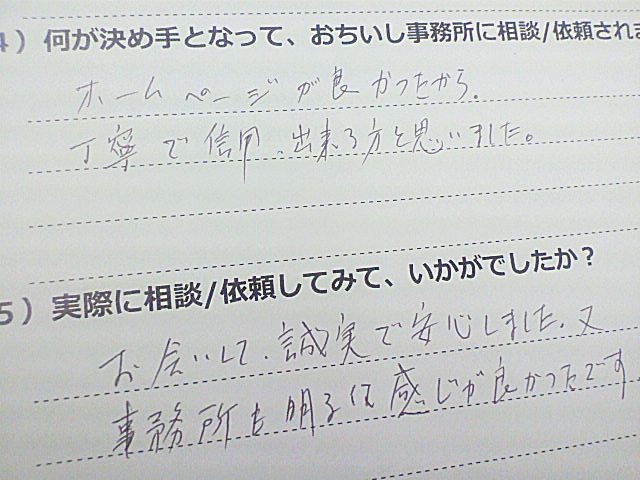 4）何が決め手となって、おちいし事務所に相談/依頼されま
ホームページが良かったから。
丁寧で信用、出来る方と思いました。
5）実際に相談/依頼してみて、いかがでしたか？
お会いして、誠実で安心しました。又
事務所も明るい感じが良かったです。